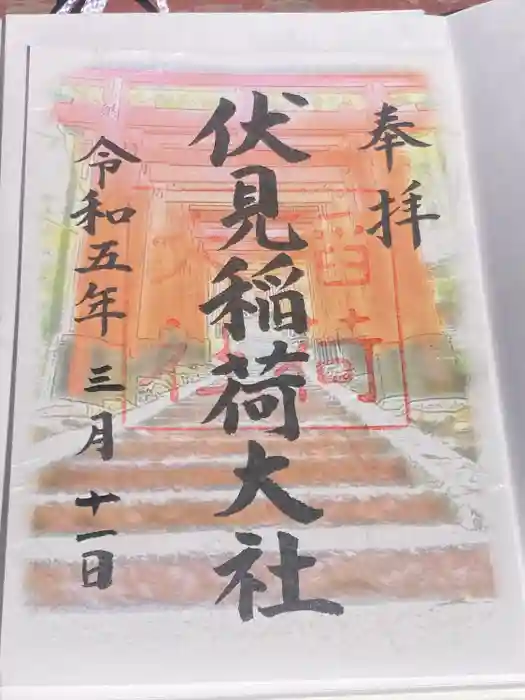 奉拝
伏見稲荷大社
令和五年 三月 十一日